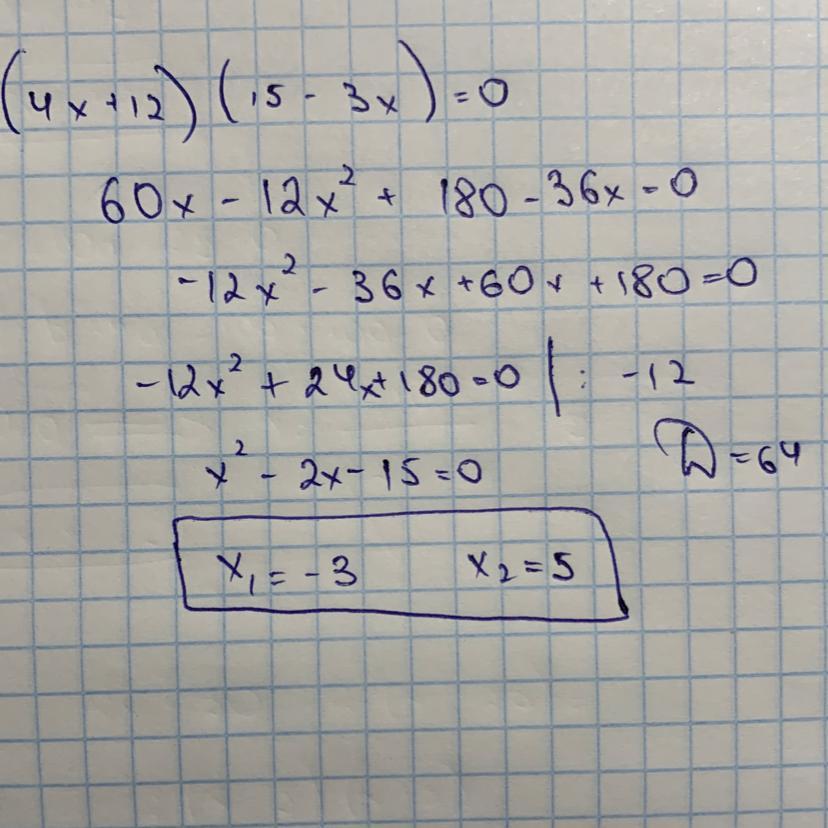 (4x+12)(15-3x)=0
60x-12x²+180-36x=0
-12x²-36x+60x+180=0
-12x²+24x+180=0 |: -12
x²-2x-15=0 D=64
x₁=-3 x₂=5